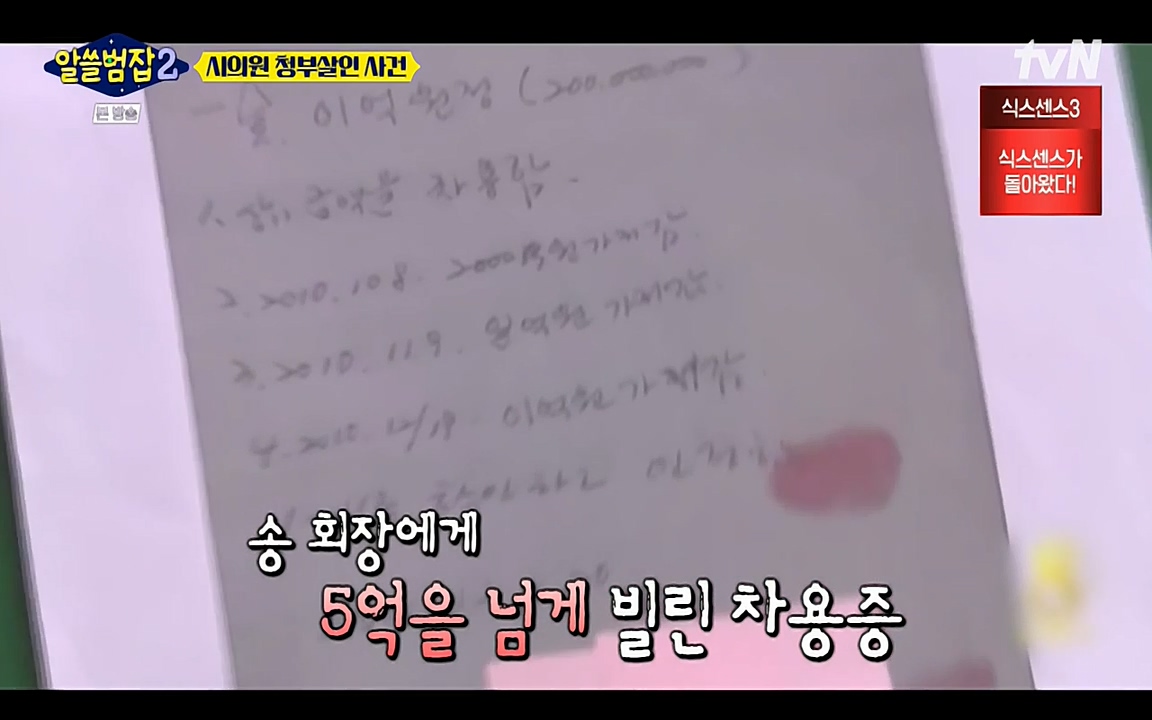 알쓸범잡2
시의원 청부살인 사건
tvN
본 방송
식스센스3
식스센스가
돌아왔다!
이억원정 (200.000.000)
차용함.
2. 2010. 10 8. 2000만원 가져감.
3. 2010. 11. 9. 일억원 가져감.
4. 2010. 12/19. 이억원 가져감.
송 회장에게
5억을 넘게 빌린 차용증